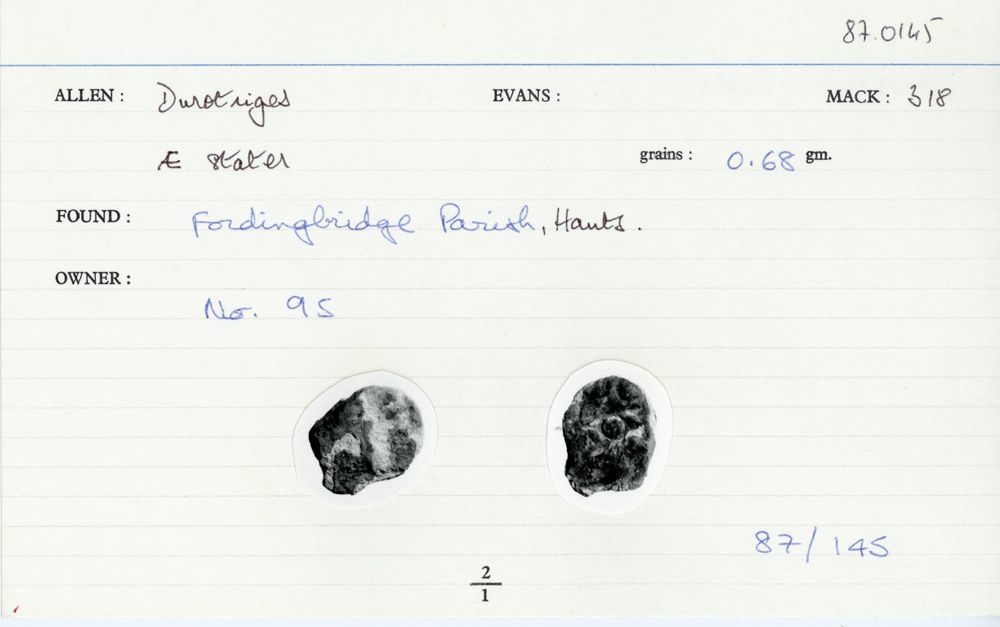 87.0145
ALLEN : Durotriges EVANS : MACK : 318
Æ stater grains : 0.68 gm.
FOUND : Fordingbridge Parish, Hants.
OWNER :
No. 95
87/145
2
1